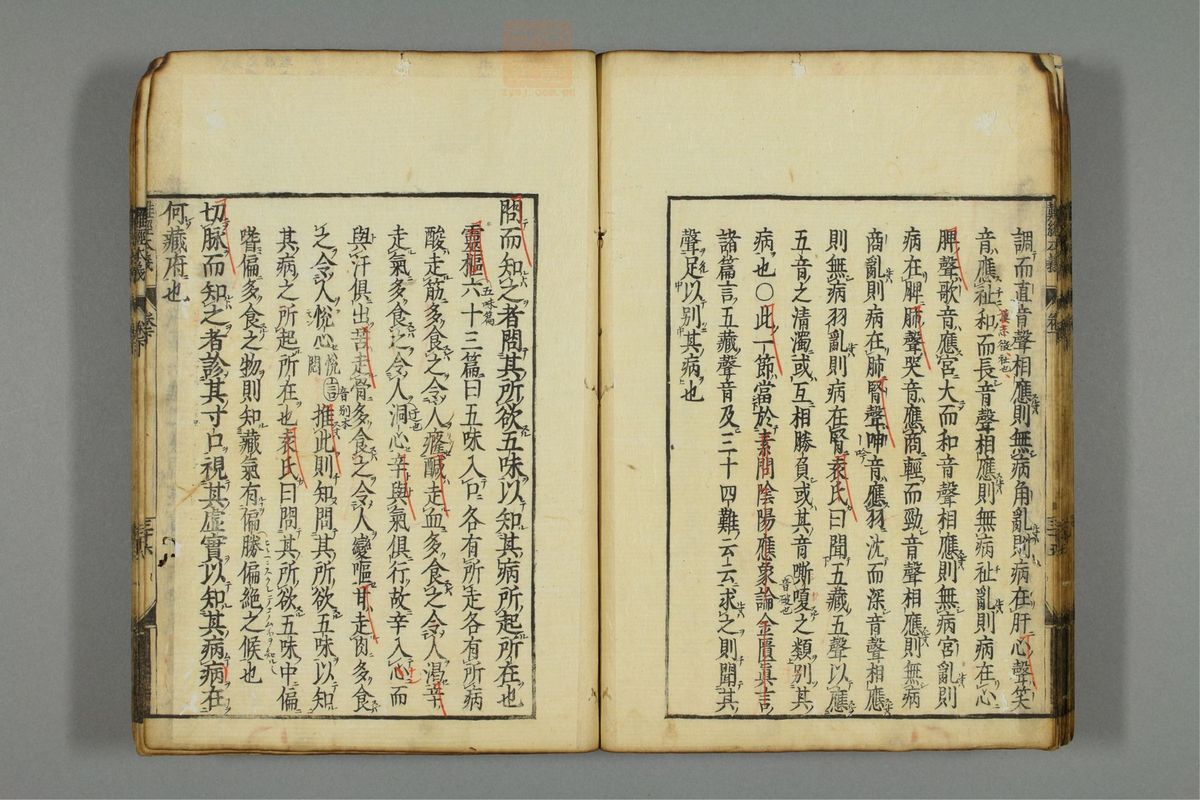 調而直音聲相應則無病角亂則病在肝心聲笑
音應祉和而長音聲相應則無病祉亂則病在心
脾聲歌音應宮大而和音聲相應則無病宮亂則
病在脾肺聲哭音應商輕而勁音聲相應則無病
商亂則病在肺腎聲呻音應羽沈而深音聲相應
則無病羽亂則病在腎袁氏曰聞五藏五聲以應
五音之清濁或互相勝負或其音嘶嗄之類別其
病也〇此一節當於素問陰陽應象論金匱眞言
諸篇言五藏聲音及三十四難云云求之則聞其
聲足以別其病也
問而知之者問其所欲五味以知其病所起所在也
靈樞六十三篇五味篇曰五味入口各有所走各有所病
酸走筋多食之令人癃鹹走血多食之令人渴辛
走氣多食之令人洞心辛與氣俱行故辛入心而
與汗俱出苦走骨多食之令人變嘔甘走肉多食
之令人悗心悗音悶推此則知問其所欲五味以知
其病之所起所在也袁氏曰問其所欲五味中偏
嗜偏多食之物則知藏氣有偏勝偏絕之候也
切脉而知之者診其寸口視其虛實以知其病病在
何藏府也